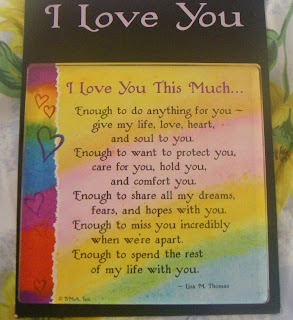 I Love You
I Love You This Much...
Enough to do anything for you ~
give my life, love, heart,
and soul to you.
Enough to want to protect you,
care for you, hold you,
and comfort you.
Enough to share all my dreams,
fears, and hopes with you.
Enough to miss you incredibly
when we're apart.
Enough to spend the rest
of my life with you.
~ Lisa M. Thomas